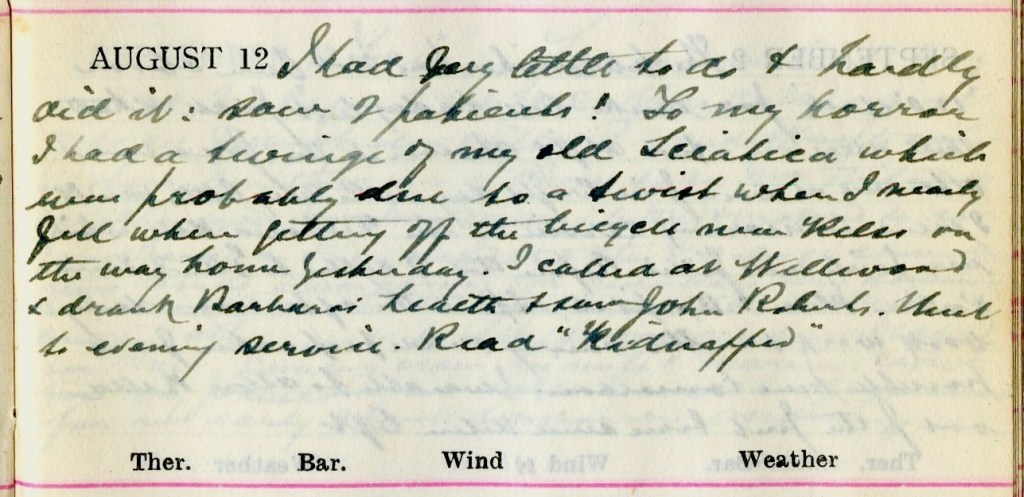 AUGUST 12 I had very little to do & hardly
did it: saw 2 patients! To my horror
I had a twinge of my old Sciatica which
was probably due to a twist when I nearly
fell when getting off the bicycle near Kelso on
the way home yesterday. I called at Wellwood
& drank Barbara's health & saw John Roberts. Went
to evening service. Read "Kidnapped"
Ther. Bar. Wind Weather